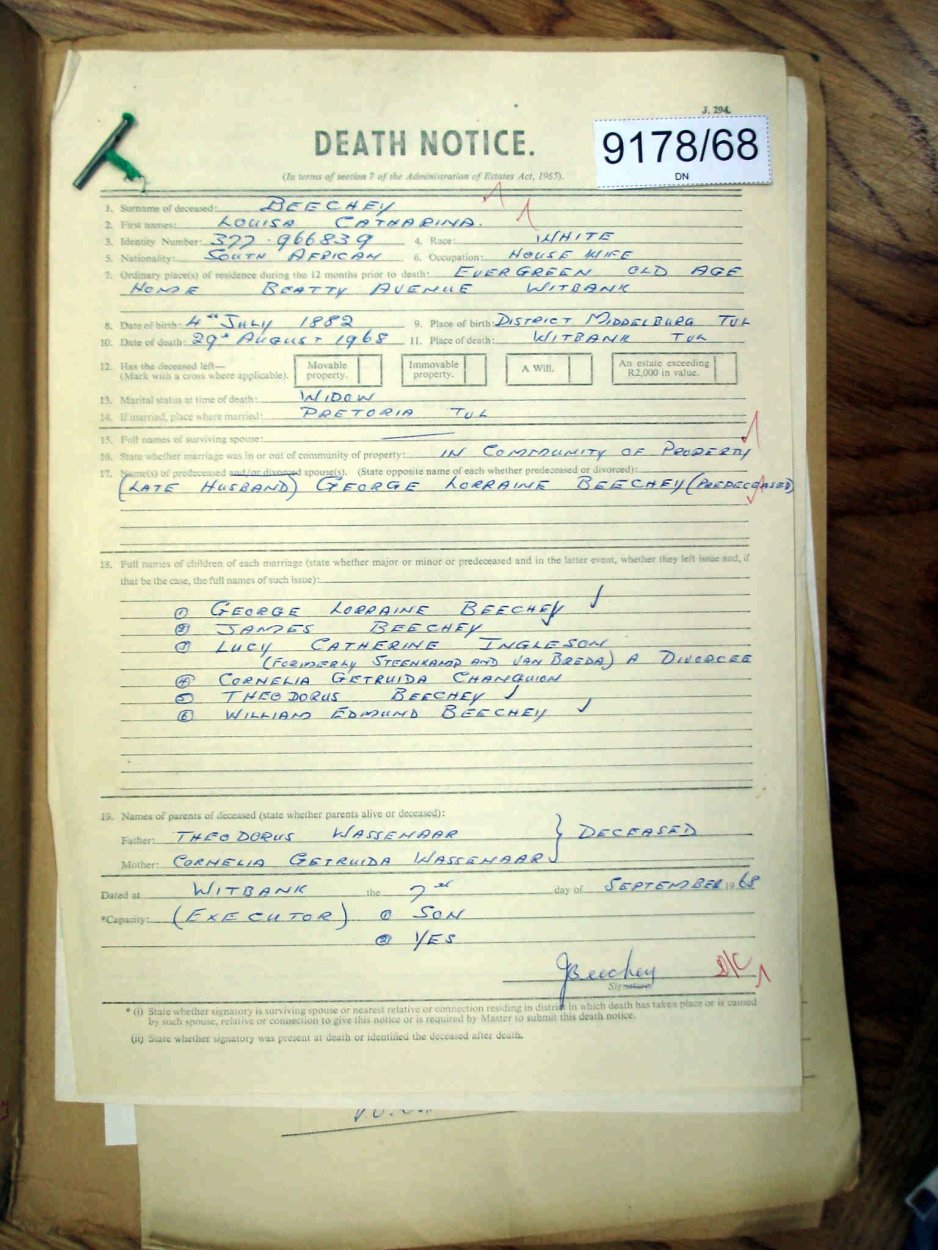 J. 294.
DEATH NOTICE.
9178/68
DN
(In terms of section 7 of the Administration of Estates Act, 1965).
1. Surname of deceased: BEECHEY
2. First names: LOUISA CATHARINA.
3. Identity Number: 377-966839 4. Race: WHITE
5. Nationality: SOUTH AFRICAN 6. Occupation: HOUSE WIFE
7. Ordinary place(s) of residence during the 12 months prior to death: EVERGREEN OLD AGE
HOME BEATTY AVENUE WITBANK
8. Date of birth: 4TH JULY 1882 9. Place of birth: DISTRICT MIDDELBURG TVL
10. Date of death: 29th AUGUST 1968 11. Place of death: WITBANK TVL
12. Has the deceased left— Movable property. Immovable property. A Will. An estate exceeding R2,000 in value.
(Mark with a cross where applicable).
13. Marital status at time of death: WIDOW
14. If married, place where married: PRETORIA TVL
15. Full names of surviving spouse:
16. State whether marriage was in or out of community of property: IN COMMUNITY OF PROPERTY
17. Name(s) of predeceased and/or divorced spouse(s). (State opposite name of each whether predeceased or divorced):
(LATE HUSBAND) GEORGE LORRAINE BEECHEY (PREDECEASED)
18. Full names of children of each marriage (state whether major or minor or predeceased and in the latter event, whether they left issue and, if
that be the case, the full names of such issue):
① GEORGE LORRAINE BEECHEY
② JAMES BEECHEY
③ LUCY CATHERINE INGLESON
(FORMERLY STEENKAMP AND VAN BREDA) A DIVORCEE
④ CORNELIA GETRUIDA CHANGUION
⑤ THEODORUS BEECHEY
⑥ WILLIAM EDMUND BEECHEY
19. Names of parents of deceased (state whether parents alive or deceased):
Father: THEODORUS WASSENAAR } DECEASED
Mother: CORNELIA GETRUIDA WASSENAAR
Dated at WITBANK the 7 day of SEPTEMBER 1968
*Capacity: (EXECUTOR) ① SON
② YES
JBeechey
Signature.
* (i) State whether signatory is surviving spouse or nearest relative or connection residing in district in which death has taken place or is caused
by such spouse, relative or connection to give this notice or is required by Master to submit this death notice.
(ii) State whether signatory was present at death or identified the deceased after death.